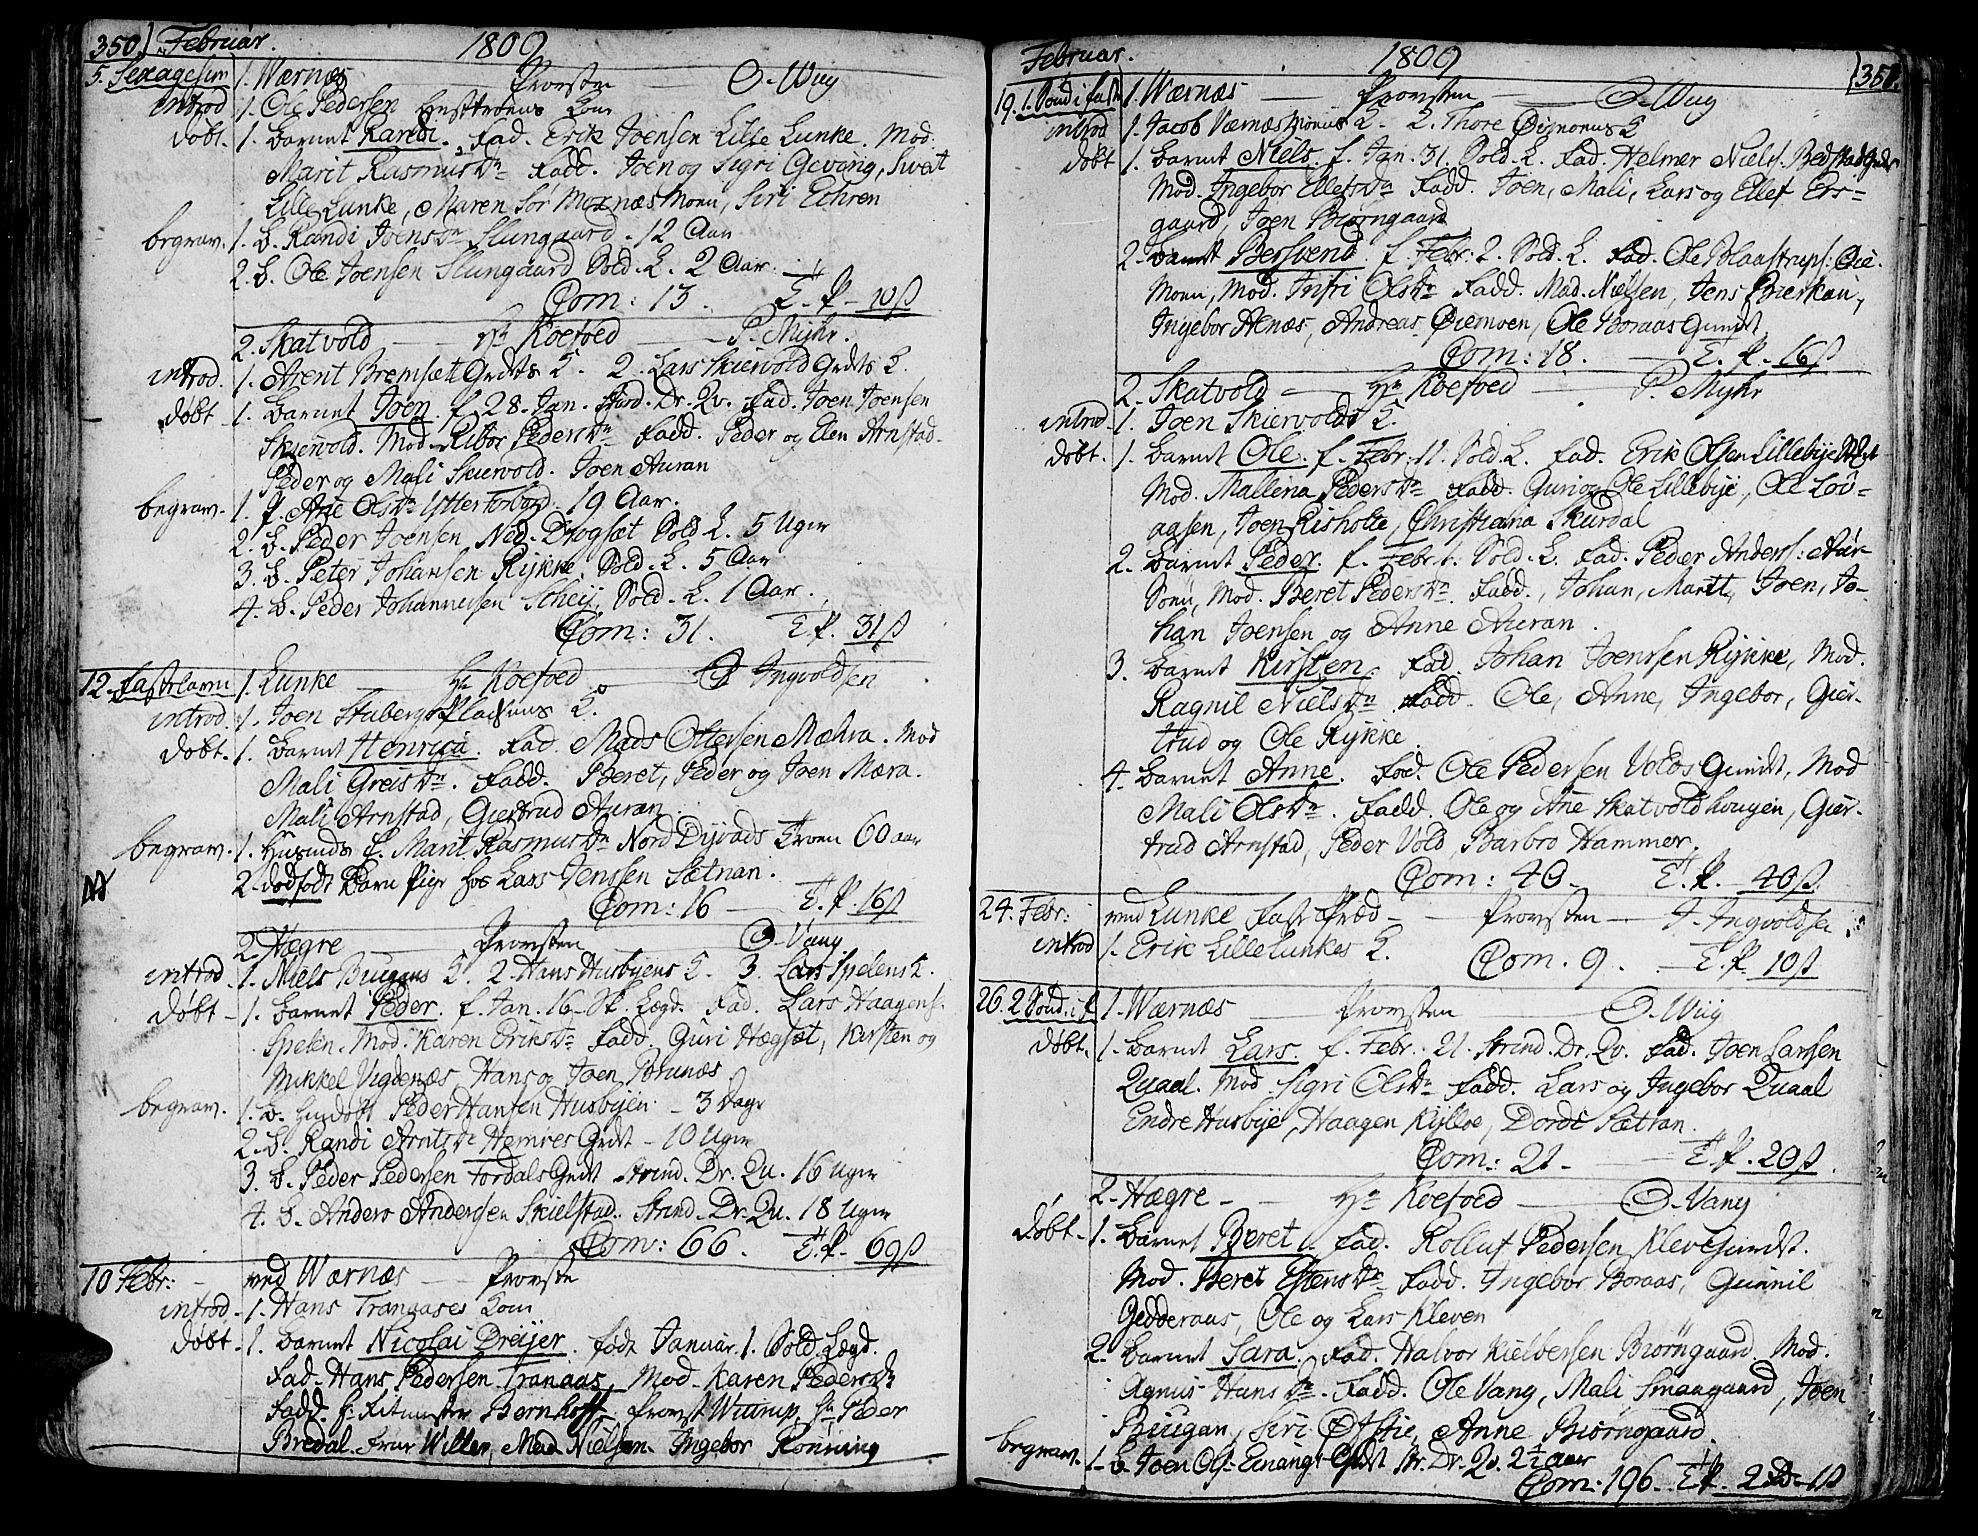 350. Februar. 1809
5. Sexagesim 1. Wærnæs Provsten O. Wiig
introd 1. Ole Pedersen Kone
døbt. 1. Barnet Randi. Fad. Erik Joensen Lille Lunke. Mod.
Marit Rasmusdr Fadd. Joen og Sigri Gevang, Swat
Lille Lunke, Maren Sør Moxnæs Moen, Siri Echren
begrav. 1. B. Randi Joensdr Slungaard. 12 Aar
2. B. Ole Joensen Slungaard Sold. L. 2 Aar.
Com: 13. T. P. 10 ß
2. Skatvold Hr Koefoed P. Myhr.
introd. 1. Arent Bremsæt Grdts K. 2. Lars Skiervold Grdts K.
døbt 1. Barnet Joen. f. 28. Jan. Strd. Dr. Qv. Fad. Joen Joensen
Skiervold. Mod. Ribor Pedersdr Fadd. Peder og Elen Arnstad.
Peder og Mali Skiervold. Joen Auran
begrav. 1. P. Ane Olsdr Ytter Forbord. 19 Aar.
2. B. Peder Joensen Ned. Drogsæt Sold. L. 5 Uger
3. B. Peter Johansen Rykke Sold. L. 5 Aar
4. B. Peder Johannesen Scheij. Sold. L. 1 Aar.
Com: 31. T. P. 31 ß
12. Fastelavn 1. Lunke Hr Koefoed O Ingvoldsen
introd. 1. Joen Stubergs Pladsens K.
døbt. 1. Barnet Henrica. Fad. Mads Ottersen Mæhra. Mod
Mali Greisdr. Fadd. Beret, Peder og Joen Mæra.
Mali Arnstad, Giertrud Auran.
begrav. 1. Husmds E. Marit Rasmusdr Nord Dyvads Troen 60 aar
2. dødfødt Barn Pige hos Lars Jenssen Sætnan.
Com: 16 T. P. 16 ß
2. Hegre Provsten O. Vang
introd. 1. Niels Buugans K. 2. Hans Husbyens K. 3. Lars Spelens K.
døbt 1. Barnet Peder. f. Jan. 16. Sk. Lægd. Fad. Lars Haagens.
Spelen. Mod. Karen Eriksdr Fadd. Guri Hægset, Kirsten og
Mikkel Vigdenæs Hans og Joen Brunæs
begrav. 1. B. hiemdøbt Peder Hansen Husbyen. 3 Dage
2. B. Randi Arntsdr Hemres Grdt 10 Uger
3. B. Peder Pedersen Fordals Grdt Strind. Dr. Qu. 16 Uger
4. B. Anders Andersen Skielstad. Strind. Dr. Qu. 18 Uger
Com: 66. T. P. 69 ß
10 Febr: ved Wærnæs Provste
introd. 1. Hans Tranaases Kone
døbt. 1. Barnet Nicolai Dreijer. født Januar. 1. Sold. Lægd.
Fad. Hans Pedersen Tranaas, Mod. Karen Pedersdr
Fadd. H. Ritmester Bernhoft. Provst Wittrup, Hr Peder
Bredal. Frue Willer, Mad. Nielsen. Ingebor Rönning
Februar. 1809 351.
19. 1. Sond i fast 1. Wærnæs Provsten O. Wiig
introd 1. Jacob Værnæsmoens K. 2. Thore Øiemoens K
døbt 1. Barnet Niels. f. Jan. 31. Sold. L. Fad. Helmer Niels. Bedstad Grdt
Mod. Ingebor Ellefsdr Fadd. Joen, Mali, Lars og Ellef Ers-
gaard, Joen Biørngaard
2. Barnet Bersvend. f. Febr. 2. Sold. L. Fad. Ole Blaastrups: Øie.
Moen, Mod. Infri Olsdr Fadd. Mad. Nielsen, Jens Bierkan,
Ingebor Aenæs, Andreas Øiemoen, Ole Boraas Grindt.
Com: 18. T. P. 16 ß
2. Skatvold Hr Koefoed P. Myhr
introd 1. Joen Skiervolds K.
døbt. 1. Barnet Ole. f. Febr. 11. Sold. L. Fad. Erik Olsen Lillebye
Mod. Mallena Pedersdr Fadd. Guri og Ole Lillebye, Ole Löv-
aasen, Joen Risholte, Christiana Skurdal
2. Barnet Peder. f. Febr. 1. Sold. L. Fad. Peder Anders: Aar-
Sönu, Mod. Beret Pedersdr. Fadd., Johan, Marit, Joen, Jo-
han Joensen og Anne Auran.
3. Barnet Kirsten. Fad. Johan Joenssen Rykke, Mod.
Ragnil Nielsdr Fadd. Ole, Anne, Ingebor, Gier-
trud og Ole Rykke.
4. Barnet Anne. Fad. Ole Pedersen Volds Grindt, Mod
Mali Olsdr. Fadd. Ole og Ane Skatvoldhougen, Gier-
trud Arnstad, Peder Vold, Barbro Hammer.
Com: 40. T. P. 40 ß.
24. Febr: ved Lunke Faste Præd Provsten J. Ingvoldsen
introd 1. Erik Lille Lunkes K. Com. 9. T. P. 10 ß
26. 2 Sond. i f. 1. Wærnæs Provsten O. Wiig
døbt. 1. Barnet Lars. f. Febr. 21. Strind. Dr. Qv. Fad. Joen Larssen
Quaal. Mod. Sigri Olsdr Fadd. Lars og Ingebor Quaal
Endre Husbye, Haagen Kylloe, Dordi Sætran.
Com: 21. T. P. 20 ß.
2. Hægre Hr Koefoed O. Vang
døbt 1. Barnet Beret Fad. Rolluf Pedersen Kleve Grindt.
Mod. Beret Estensdr Fadd. Ingebor Boraas, Gunnil
Gedderaas, Ole og Lars Kleven
2. Barnet Sara. Fad. Halvor Kielbersen Biørngaard. Mod.
Agnis Hansdr. Fadd. Ole Vang, Mali Smaagaard, Joen
Buugan, Siri Østtie, Anne Biørngaard.
begrav. 1. B. Joen Ols. Einangs Grdt Str. Dr. Qv. 2 1/2 aar
Com: 196. T. P. 2 Rd. 1 ß